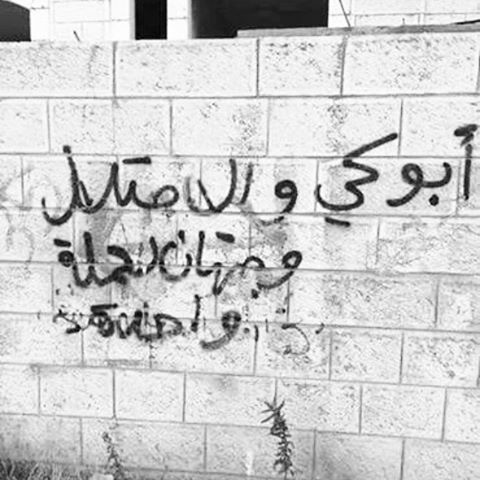 أبوكي والاحتلال
وجهان لعملة
واحدة